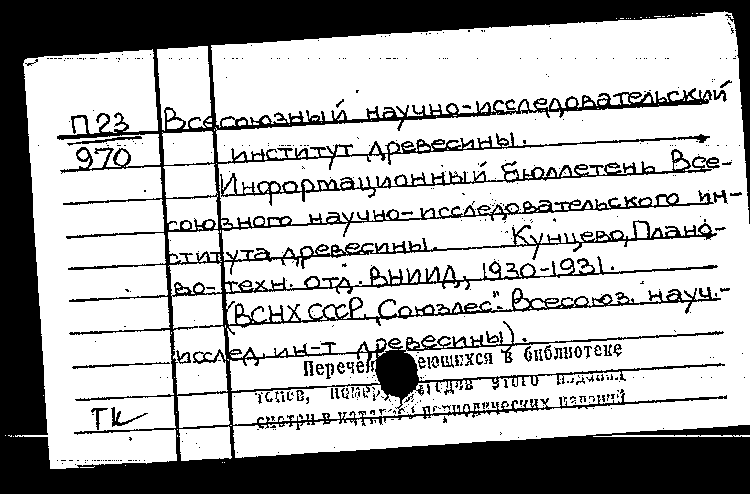 П23
970
Всесоюзный научно-исследовательский
институт древесины.
Информационный бюллетень Все-
союзного научно-исследовательского ин-
ститута древесины. Кунцево, Плано-
во-техн. отд. ВНИИД, 1930-1931.
(ВСНХ СССР. „Союзлес". Всесоюз. науч.-
исслед. ин-т древесины).
Перечень имеющихся в библиотеке
томов, номеров, годов этого издания
смотри в каталоге периодических изданий
ТК